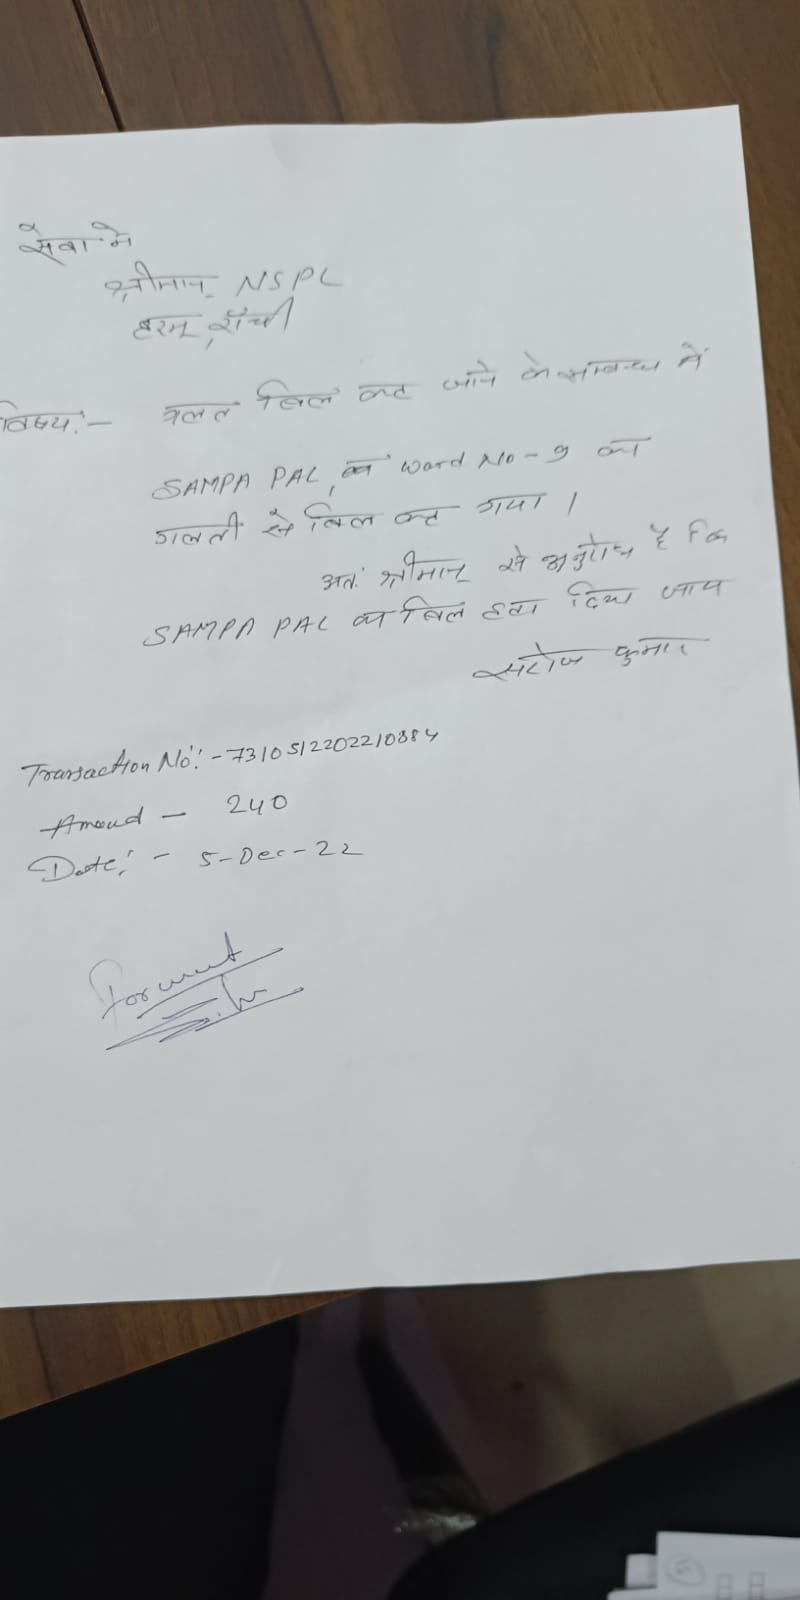 सेवा में
श्रीमान् NSPL
हरमू, राँची
विषय:- गलत बिल कट जाने के सम्बन्ध में
SAMPA PAL, का Ward No - 9 का
गलती से बिल कट गया।
अतः श्रीमान् से अनुरोध है कि
SAMPA PAL का बिल हटा दिया जाय
सरोज कुमार
Transaction No:-
Amound - 240
Date:- 5-Dec-22